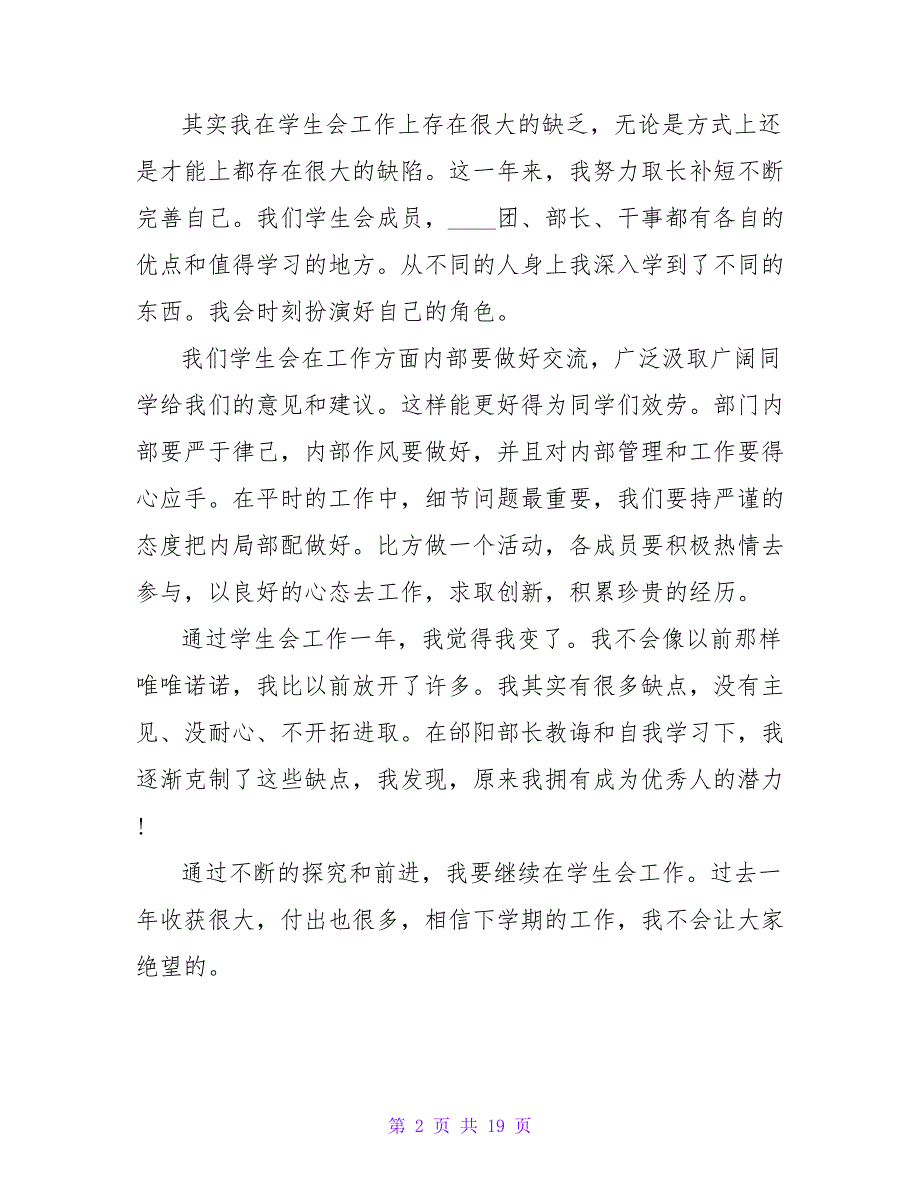 其实我在学生会工作上存在很大的缺乏，无论是方式上还
是才能上都存在很大的缺陷。这一年来，我努力取长补短不断
完善自己。我们学生会成员，____团、部长、干事都有各自的
优点和值得学习的地方。从不同的人身上我深入学到了不同的
东西。我会时刻扮演好自己的角色。
我们学生会在工作方面内部要做好交流，广泛汲取广阔同
学给我们的意见和建议。这样能更好得为同学们效劳。部门内
部要严于律己，内部作风要做好，并且对内部管理和工作要得
心应手。在平时的工作中，细节问题最重要，我们要持严谨的
态度把内局部配做好。比方做一个活动，各成员要积极热情去
参与，以良好的心态去工作，求取创新，积累珍贵的经历。
通过学生会工作一年，我觉得我变了。我不会像以前那样
唯唯诺诺，我比以前放开了许多。我其实有很多缺点，没有主
见、没耐心、不开拓进取。在邰阳部长教诲和自我学习下，我
逐渐克制了这些缺点，我发现，原来我拥有成为优秀人的潜力
！
通过不断的探究和前进，我要继续在学生会工作。过去一
年收获很大，付出也很多，相信下学期的工作，我不会让大家
绝望的。
第 2 页 共 19 页